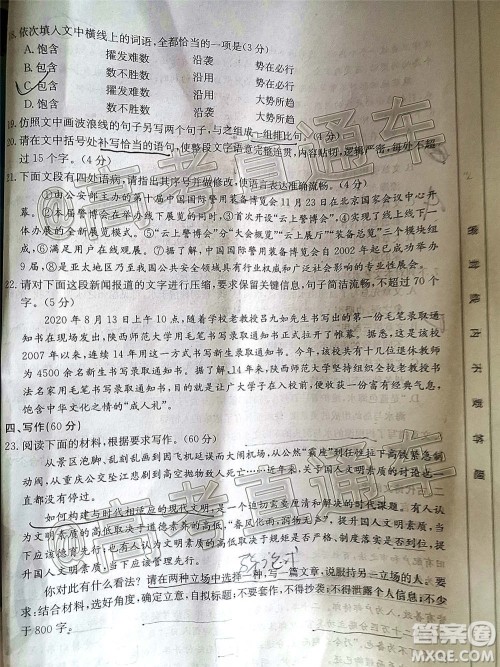 18.依次填入文中横线上的词语,全都恰当的一项是(3分)
A.饱含 擢发难数 沿袭 势在必行
B.包含 数不胜数 沿袭 势在必行
C.包含 擢发难数 沿用 大势所趋
D.饱含 数不胜数 沿用 大势所趋
19.仿照文中画波浪线的句子另写两个句子,与之组成一组排比句。(4分)
20.请在文中括号处补写恰当的语句,使整段文字语意完整连贯,内容贴切,逻辑严密,每处不超
过15个字。(4分)
21.下面文段有四处语病,请指出其序号并做修改,使语言表达准确流畅。(4分)
①由公安部主办的第十届中国国际警用装备博览会11月23日在北京国家会议中心开
幕。②本届警博会在
体办展的全新展览模式。③首次开设“云上警博会”,④实现了线上与线下一
“云上展厅”“云上总览”三个模块组
成,⑥满足用户在线观展。⑦据了解,中国国际警用装备博览会自2002年起已成功举办
9届,⑧是亚太地区乃至我国公共安全领域具有行业权威和广泛社会影响的专业性展会。
22.请对下面这段新闻报道的文字进行压缩,要求保留关键信息,句子简洁流畅,不超过70个
字。(5分)
2020年8月13日上午10点,随着学校老教授吕九如先生书写的第一份毛笔录取通
知书在现场发出,陕西师范大学用毛笔书写录取通知书正式拉开了帷幕。据悉,这是该校
2007年以来,连续14年用这一方式书写新生录取通知书。今年,该校共有十几位退休教师
为4500余名新生书写录取通知书。据了解,14年来,陕西师范大学坚持组织全校老教授书
法名家用毛笔书写录取通知书,目的就是让广大学子在入校前,也能享受一份富有经典气息、
饱含中华文化之情的“成人礼”。
四、写作(60分)
23.阅读下面的材料,根据要求写作。(60分)
从景区泡脚、乱刻乱画到因飞机延误而大闹机场,从公然“霸座”到任性拉下高铁紧急制
动阀,从重庆公交坠江悲剧到高空抛物致人死亡……近来,有关国人文明素质的讨论也一
直都没有停过。
如何构建与时代相适应的现代文明,是一个迫切需要厘清和解决的时代课题。有人认
为文明素质的高低取决于道德素养的高低,“春风化雨,润物无声”,提升国人文明素质,当
下应该德育先行。有人认为文明素质的高低取决于规矩是否严格、制度是否健全,提
升国人文明素质,当下应该惩罚先行。
你对此有什么看法?请在两种立场中选择一种,写一篇文章,说服持另一立场的人。要
求:结合材料,选好角度,确定立意,自拟标题:不要套作,不得抄袭;不得泄露个人信息;不少
于800字。
高考直通车
高考直通车
密封线内不要答题
答案圈
MXQE.COM